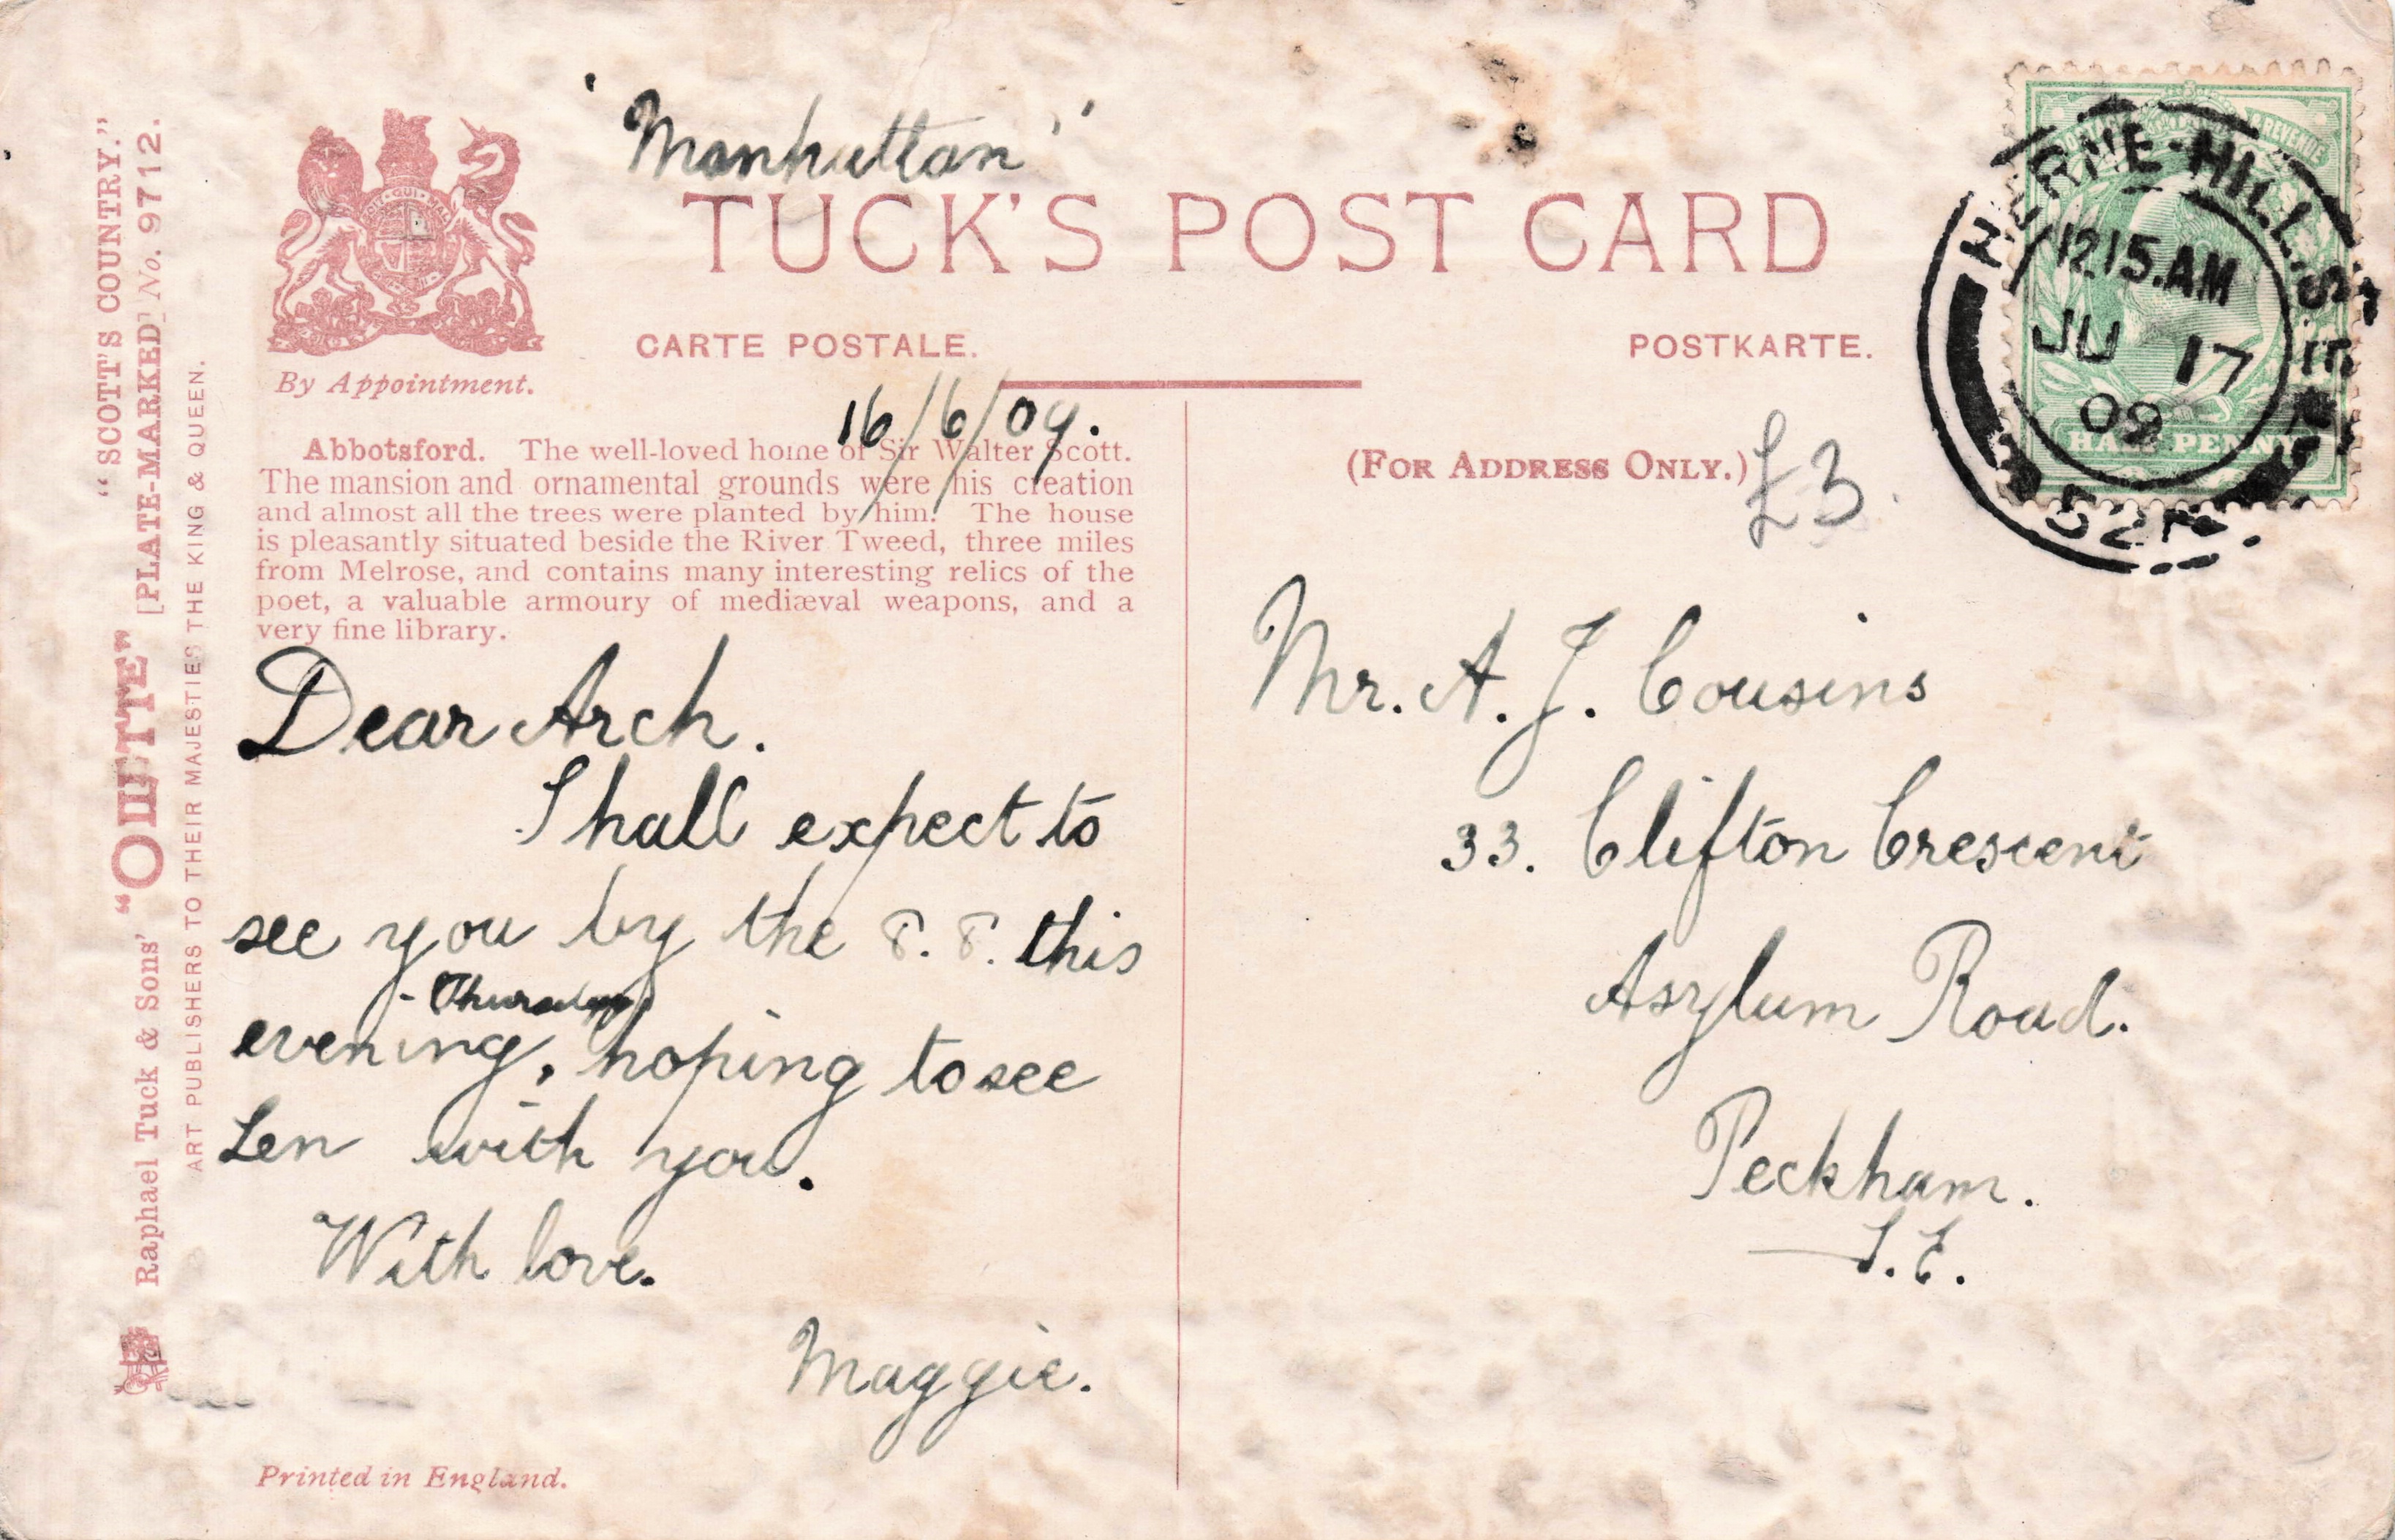 'Manhattan'
TUCK'S POST CARD
CARTE POSTALE.
POSTKARTE.
By Appointment.
16/6/09.
Abbotsford. The well-loved home of Sir Walter Scott.
The mansion and ornamental grounds were his creation
and almost all the trees were planted by him. The house
is pleasantly situated beside the River Tweed, three miles
from Melrose, and contains many interesting relics of the
poet, a valuable armoury of mediæval weapons, and a
very fine library.
Dear Arch.
Shall expect to
see you by the 8. 8. this
- Thursday
evening, hoping to see
Len with you.
With love.
Maggie.
Printed in England.
(FOR ADDRESS ONLY.)
£3.
Mr. A. J. Cousins
33. Clifton Crescent
Asylum Road.
Peckham.
S.E.
HERNE-HILL.S.E.
1215.AM
JU 17
09
HALF PENNY
"SCOTT'S COUNTRY."
Raphael Tuck & Sons' "OILETTE" [PLATE-MARKED] No. 9712.
ART PUBLISHERS TO THEIR MAJESTIES THE KING & QUEEN.